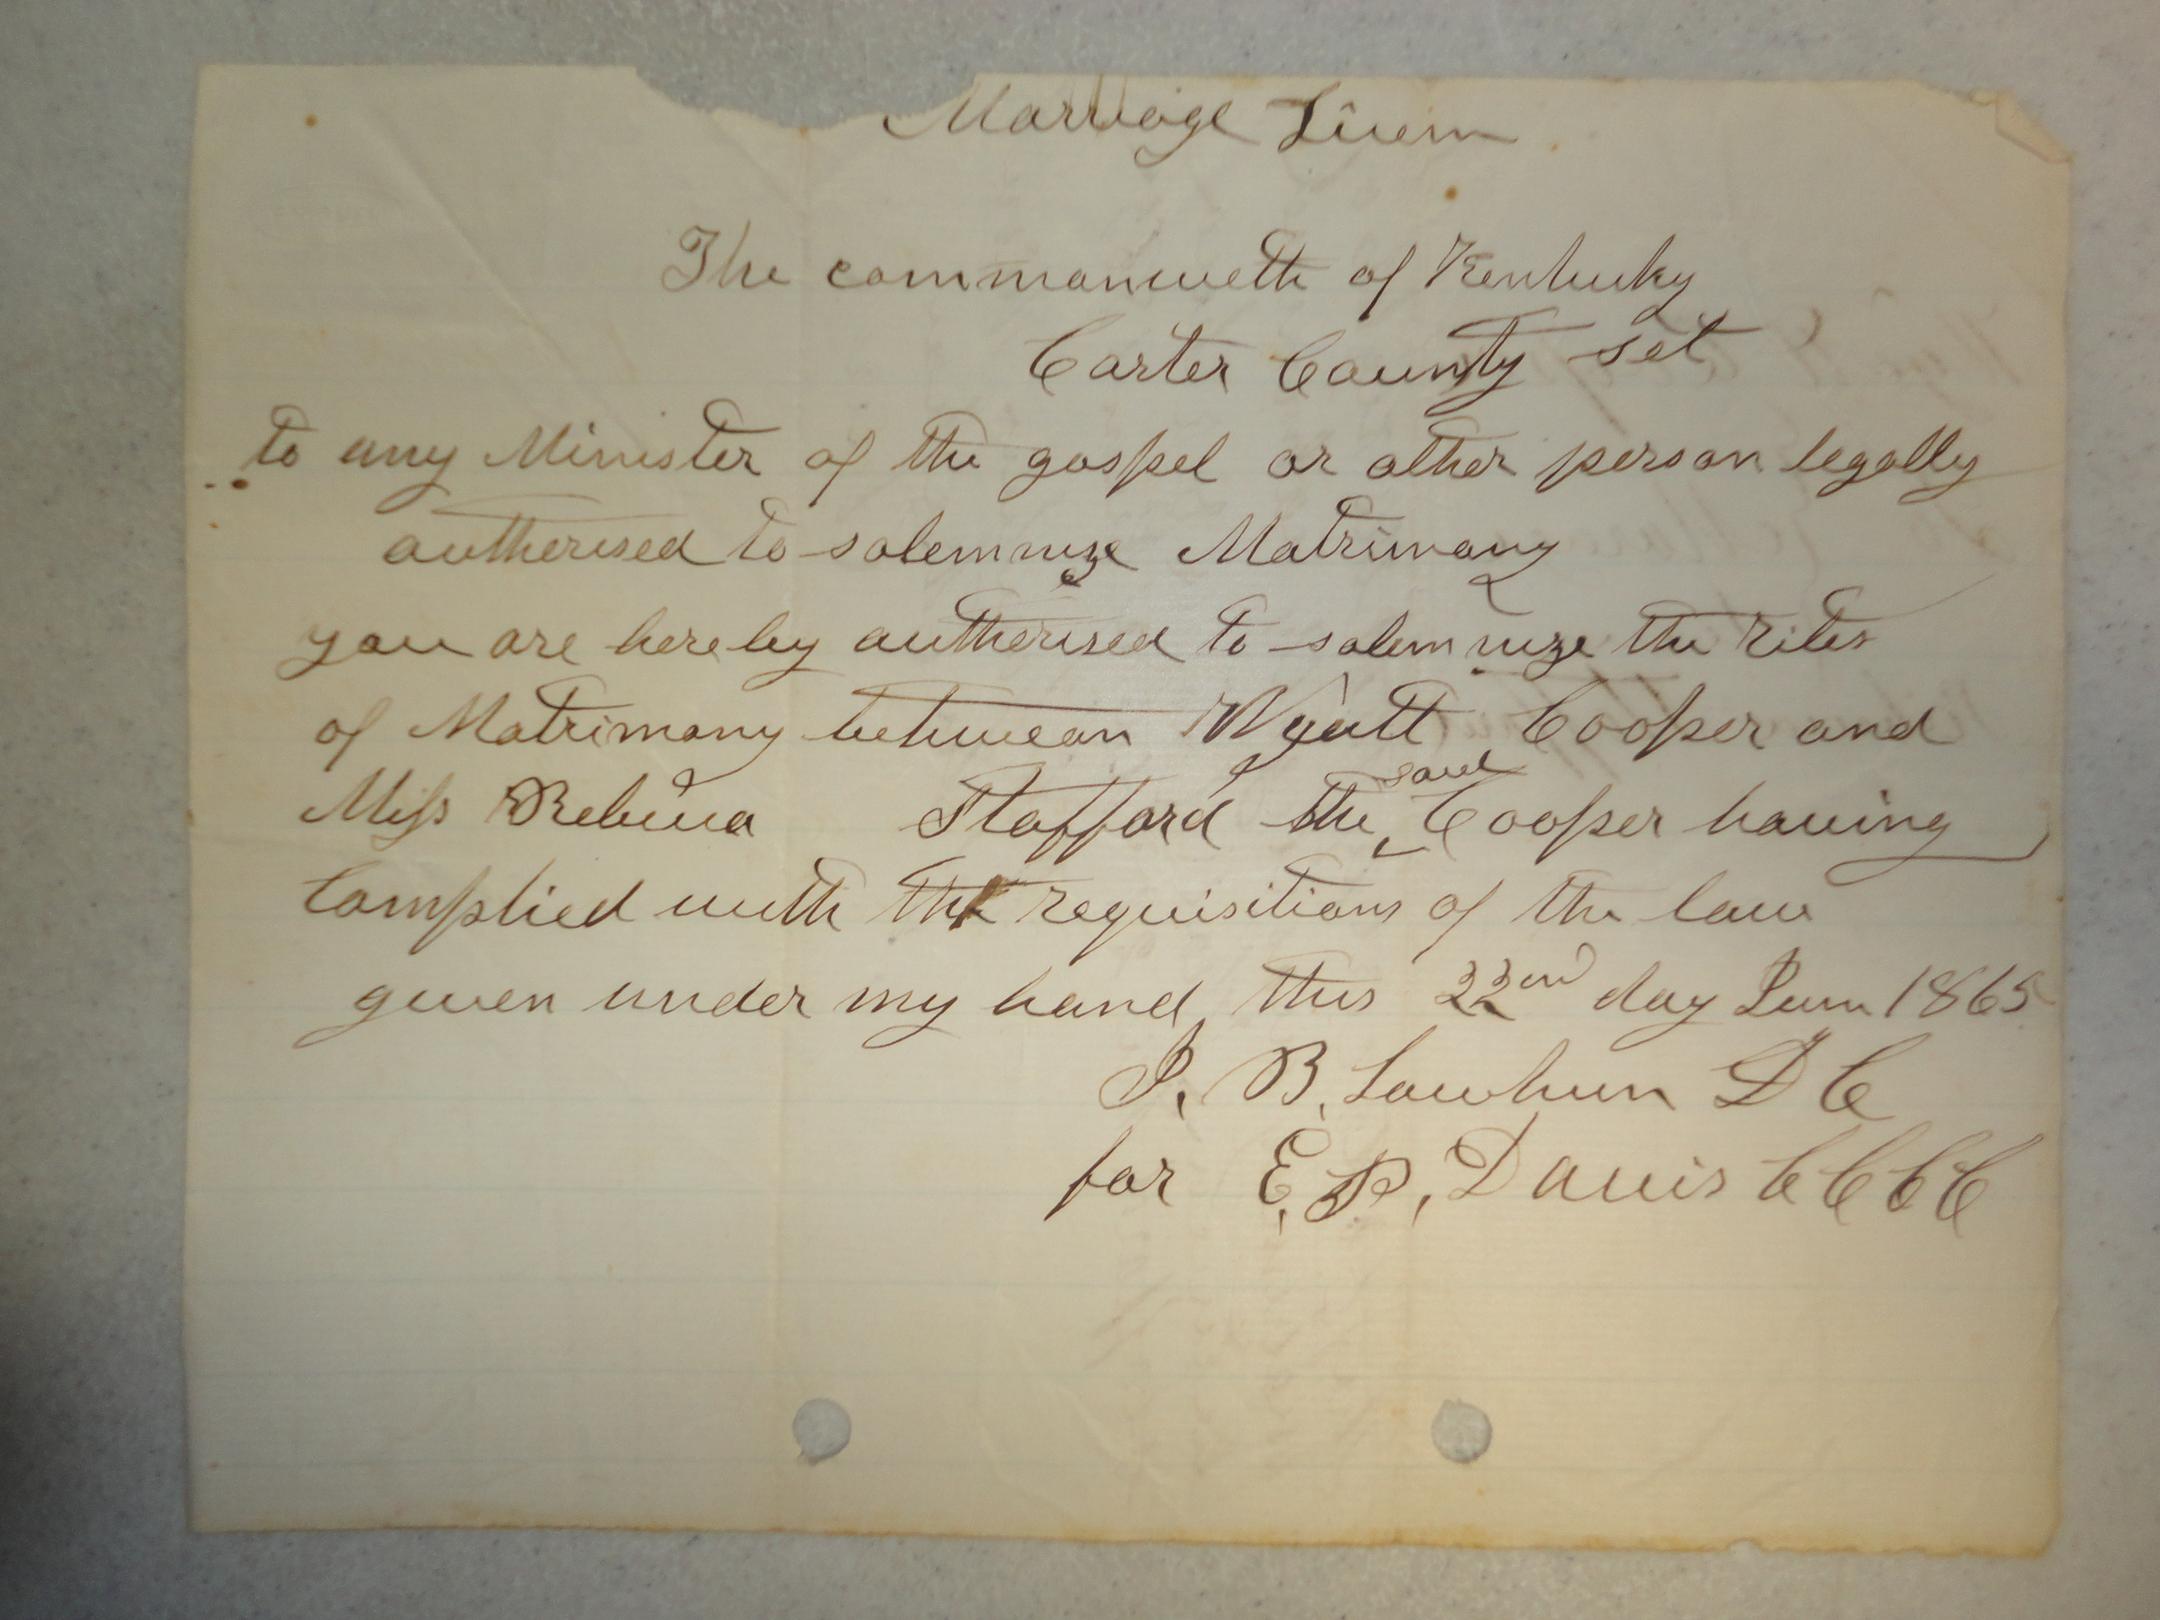 Marriage Licens
The commonwelth of Kentucky
Carter County set
to any Minister of the gospel or other person legally
autherised to solemnize Matrimony
you are hereby autherised to solemnize the rites
of Matrimony betwean Wyatt Cooper and
Miss Stafford the said Cooper having
Complied with the requisitions of the law
given under my hand this 22nd day June 1865
J. B. Lawhun D C
for E. P. Davis C C C C